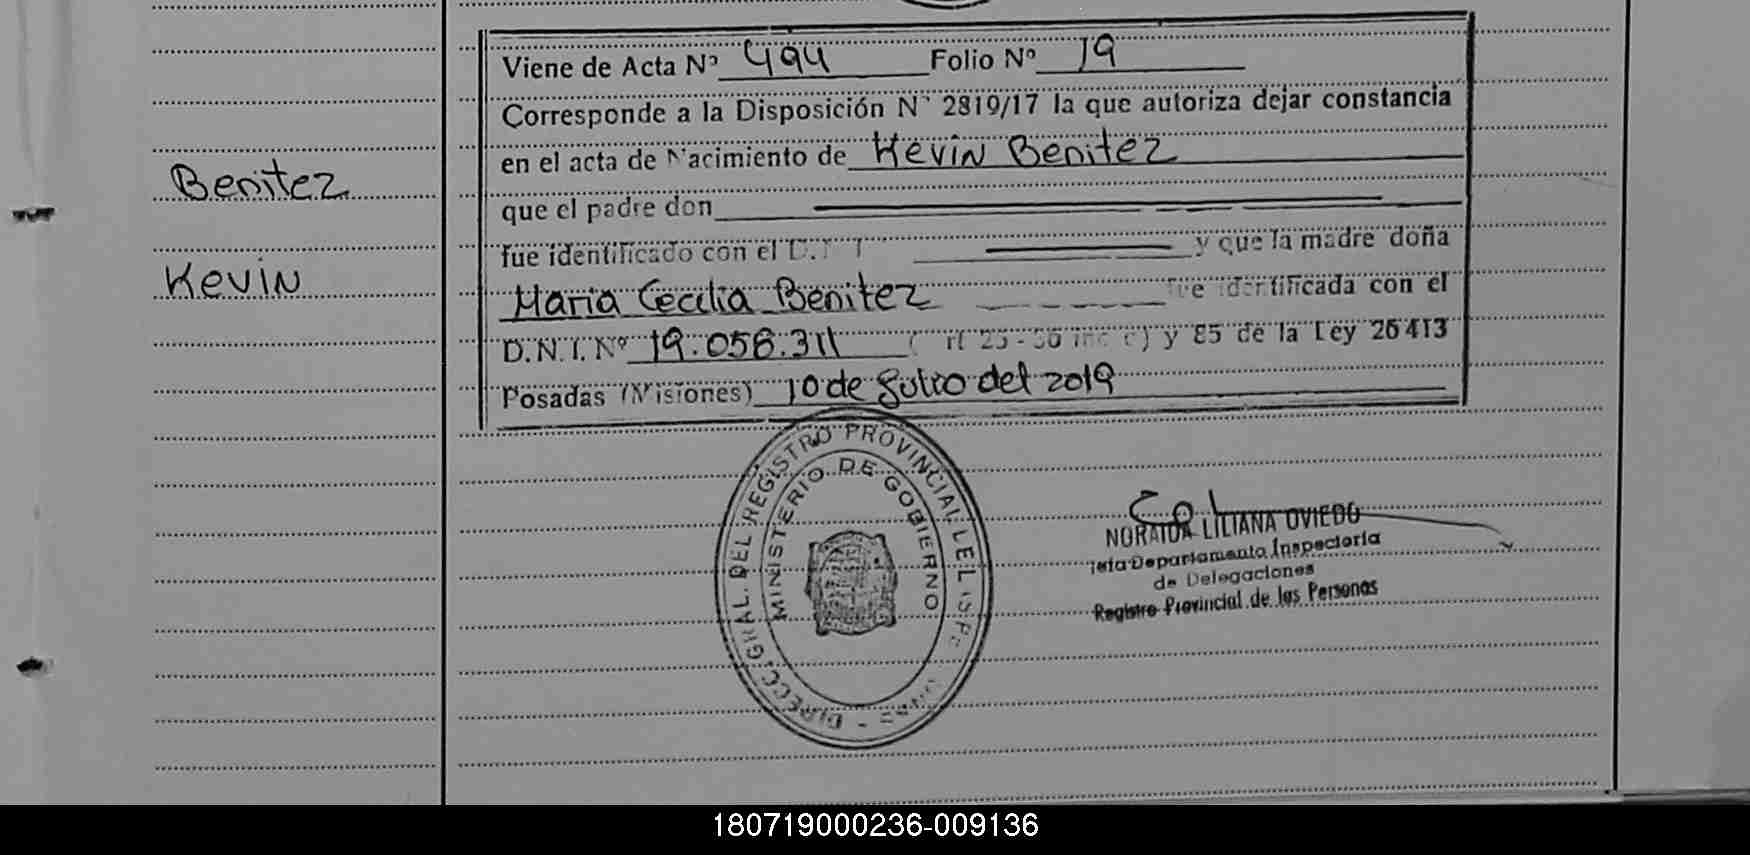 Viene de Acta Nº 494 Folio Nº 19
Corresponde a la Disposición Nº 2819/17 la que autoriza dejar constancia
en el acta de Nacimiento de Kevin Benitez
Benitez
que el padre don
fue identificado con el D. y que la madre doña
Kevin
Maria Cecilia Benitez fue identificada con el
D.N.I. Nº 19.056.311 y 85 de la Ley 26413
Posadas (Misiones) 10 de Julio del 2019
DIRECC. GRAL. DEL REGISTRO PROVINCIAL
MINISTERIO DE GOBIERNO
NORAIDA LILIANA OVIEDO
Jefa Departamento Inspectoria
de Delegaciones
Registro Provincial de las Personas
180719000236-009136